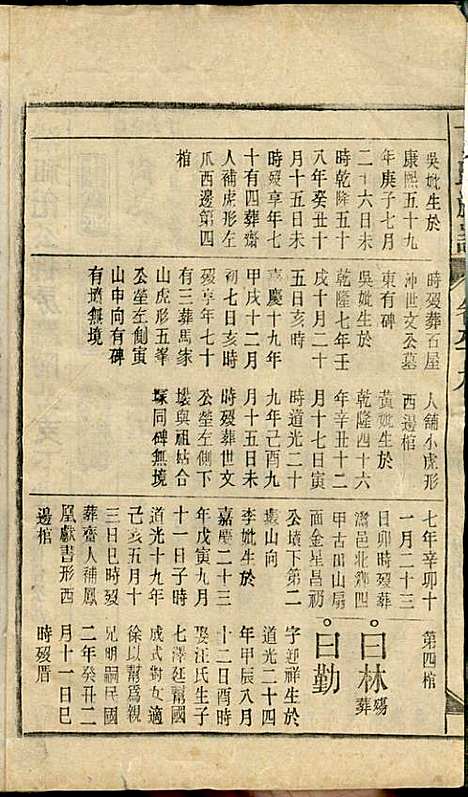 吳妣生於
康熙五十九
年庚子七月
二十六日未
時乾隆五十
八年癸丑十
月十五日未
時歿享年七
十有四葬齋
人補虎形左
爪西邊第四
棺
時歿葬石屋
沖世文公墓
東有碑
吳妣生於
乾隆七年壬
戌十月二十
五日亥時
嘉慶十九年
甲戌十二月
初七日亥時
歿享年七十
有三葬馬家
山虎形五峯
公塋左側寅
山申向有碑
有擠無境
人舖小虎形
西邊棺
黃妣生於
乾隆四十六
年辛丑十二
月十七日寅
時道光二十
九年己酉九
月十五日未
時歿葬世文
公塋左側下
壙與祖姑合
塚同碑無境
七年辛卯十
一月二十三
日卯時歿葬
邑北鄉四
甲古山扇
面金星昌礽
公墳下第二
叢山向
李妣生於
嘉慶二十三
年戊寅九月
十一日子時
道光十九年
己亥五月十
三日巳時歿
葬齋人補鳳
凰獻書形西
邊棺
第四棺
曰林殤葬
曰勤
字迎祥生於
道光二十四
年甲辰八月
十二日酉時
娶汪氏生子
七澤幫國
成式對女適
徐以幫爲親
兄明嗣民國
二年癸丑二
月十一日巳
時歿厝